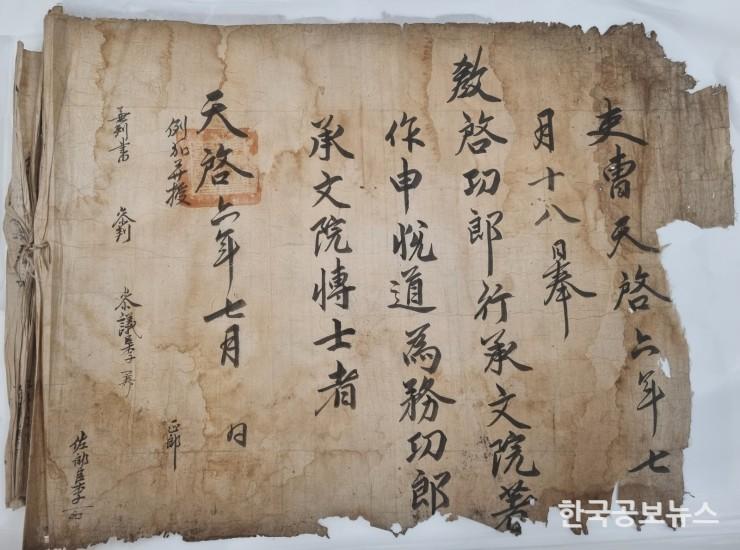 吏曹天啓六年七
月十八日奉
教啓功郎行承文院著
作申悅道為務功郎
承文院博士者
天啓六年七月 日
例加并授
判書
參判
參議臣李
正郎
佐郎臣李
한국공보뉴스